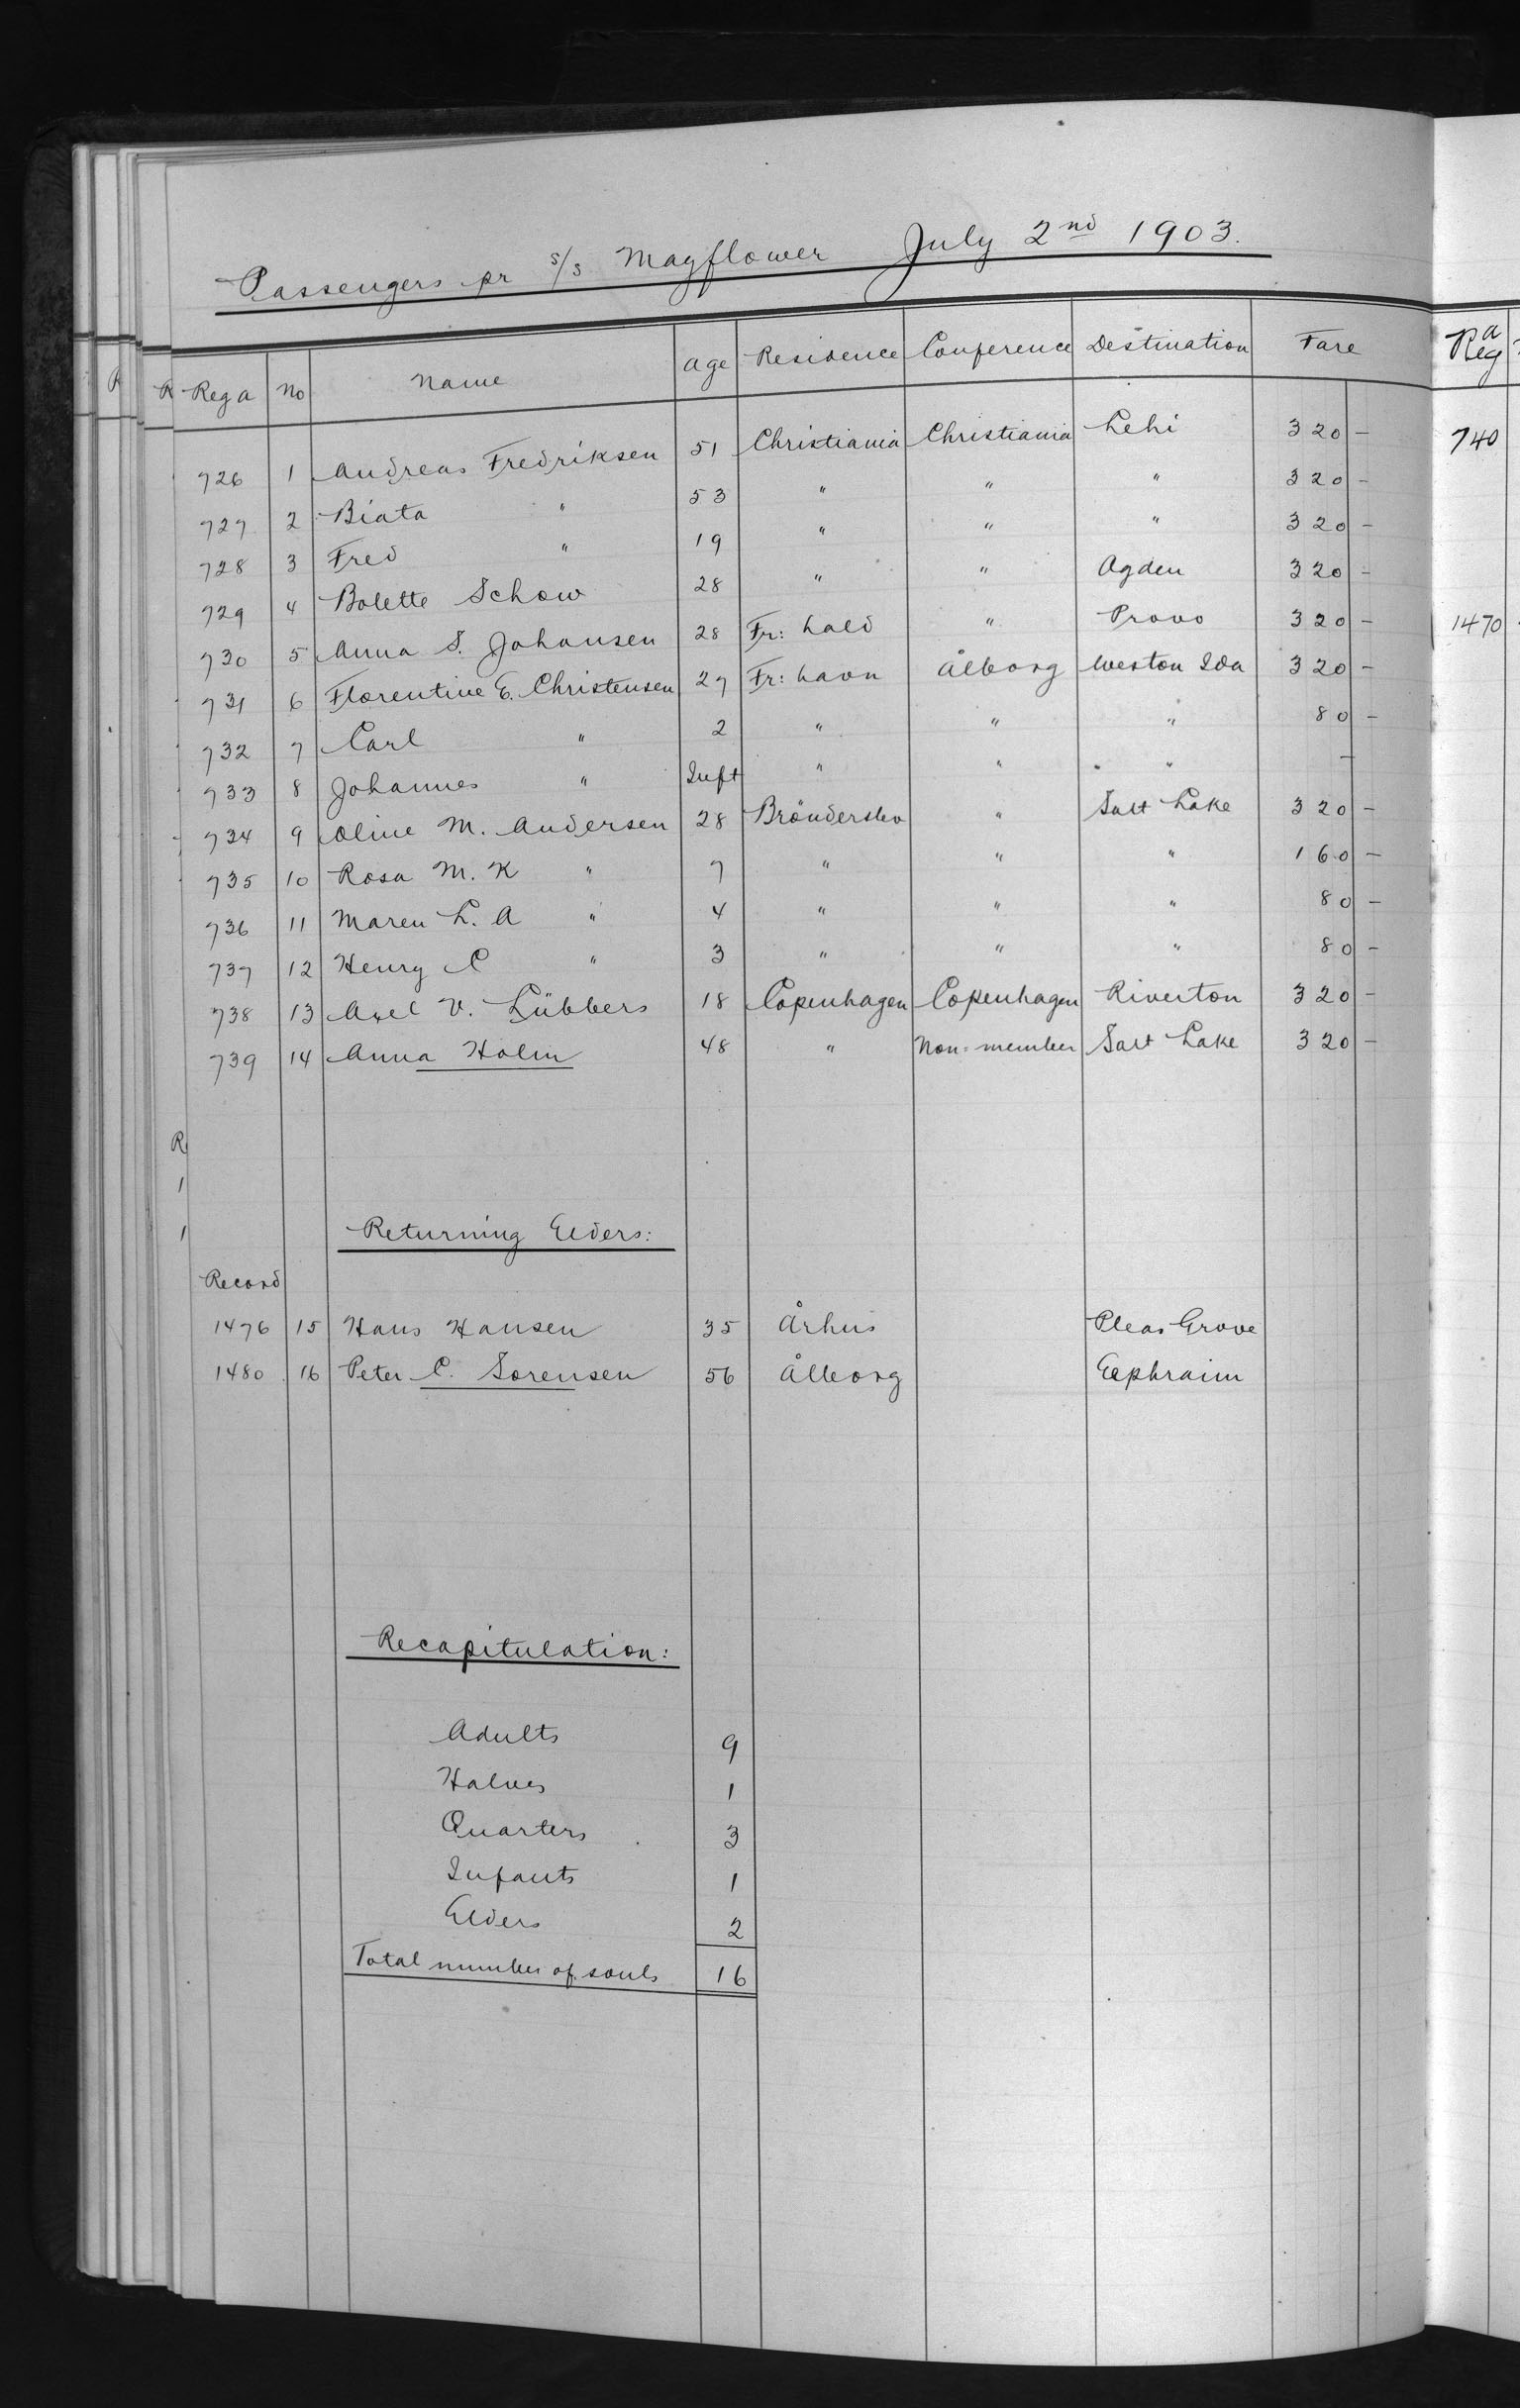 Passengers pr s/s Mayflower July 2nd 1903.
Reg a No Name Age Residence Conference Destination Fare
726 1 Andreas Fredriksen 51 Christiania Christiania Lehi 320 -
727 2 Biata " 53 " " " 320 -
728 3 Fred " 19 " " " 320 -
729 4 Bolette Schow 28 " " Ogden 320 -
730 5 Anna S. Johansen 28 Fr: hald " Provo 320 -
731 6 Florentine E. Christensen 27 Fr: havn Ålborg Weston Ida 320 -
732 7 Carl " 2 " " " 80 -
733 8 Johannes " Inft " " " -
734 9 Oline M. Andersen 28 Brönderslev " Salt Lake 320 -
735 10 Rosa M. K " 7 " " " 160 -
736 11 Maren L. A " 4 " " " 80 -
737 12 Henry C " 3 " " " 80 -
738 13 Axel V. Lübbers 18 Copenhagen Copenhagen Riverton 320 -
739 14 Anna Holm 48 " Non-member Salt Lake 320 -
Returning Elders:
Record
1476 15 Hans Hansen 35 Århus Pleas Grove
1480 16 Peter C. Sorensen 56 Ålborg Eephraim
Recapitulation:
Adults 9
Halves 1
Quarters 3
Infants 1
Elders 2
Total number of souls 16
Reg a
740
1470